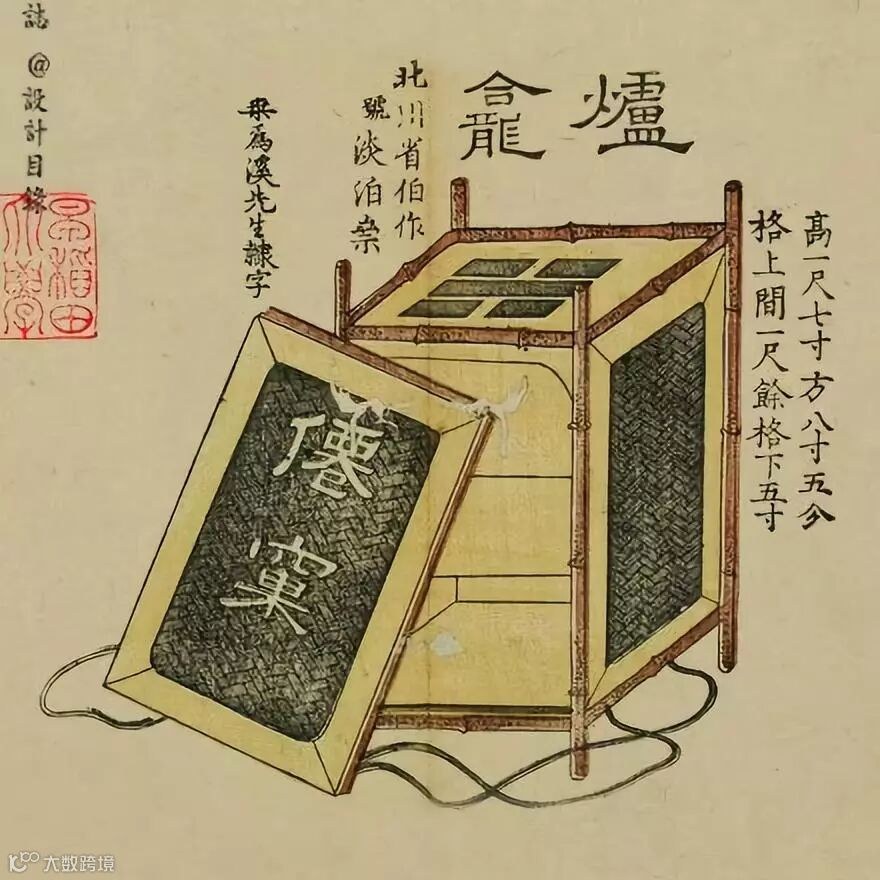 爐龕
高一尺七寸方八寸五分
格上間一尺餘格下五寸
北川省伯作
號淡泊
爲溪先生隷字
僊窠
誌 @設計目錄
早稻田大學
大数跨境